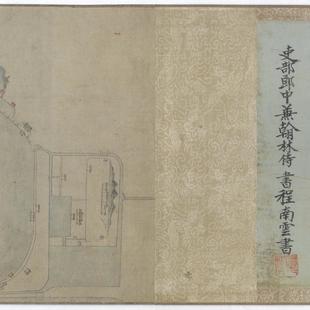 吏部郎中兼翰林侍書程南雲書